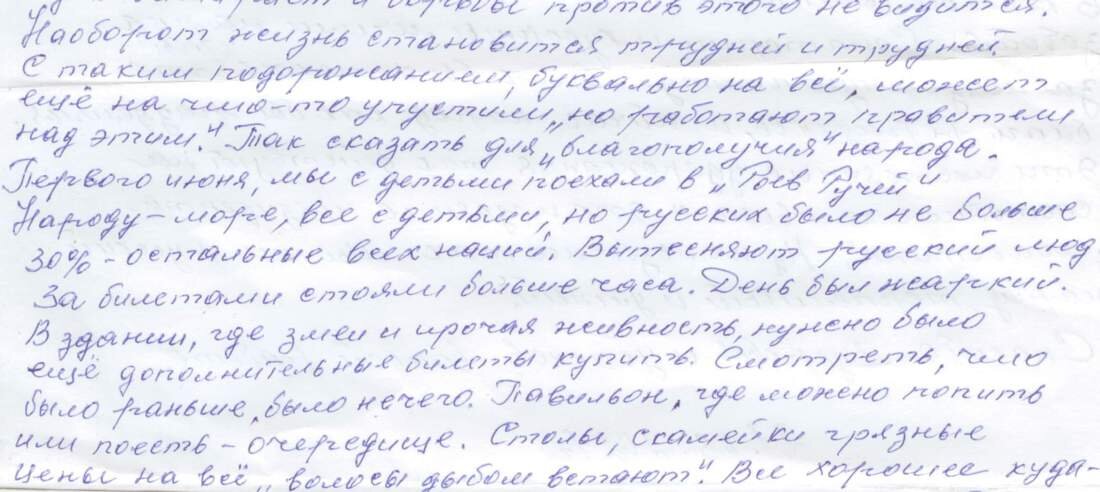 борьбы против этого не видится.
Наоборот жизнь становится трудней и трудней
С таким подорожанием, буквально на всё, может
ещё на что-то упустили, „но работают правители
над этим." Так сказать для „благополучия" народа.
Первого июня, мы с детьми поехали в „Роев Ручей"
Народу – море, все с детьми, но русских было не больше
30% – остальные всех наций. Вытесняют русский люд.
За билетами стояли больше часа. День был жаркий.
В здании, где змеи и прочая живность, нужно было
ещё дополнительные билеты купить. Смотреть, что
было раньше, было нечего. Павильон, где можно попить
или поесть – очередище. Столы, скамейки грязные
Цены на всё „волосы дыбом встают". Все хорошее куда-